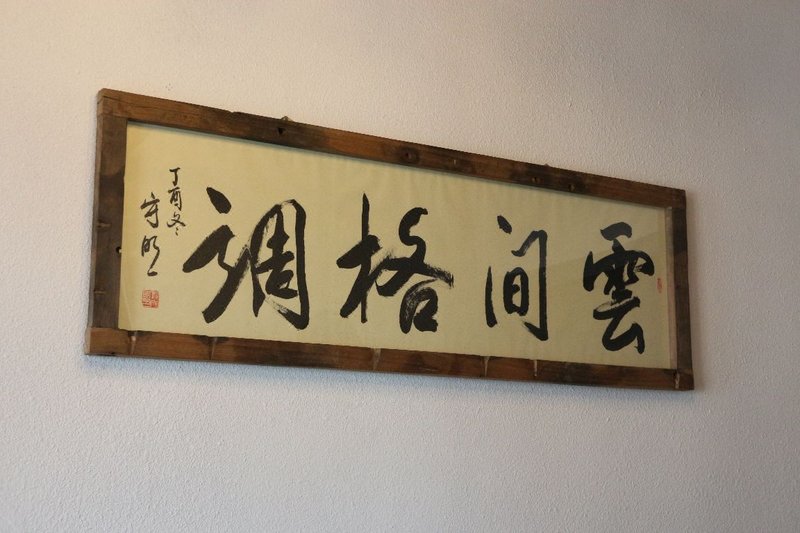 雲间格調
丁酉冬
守明一